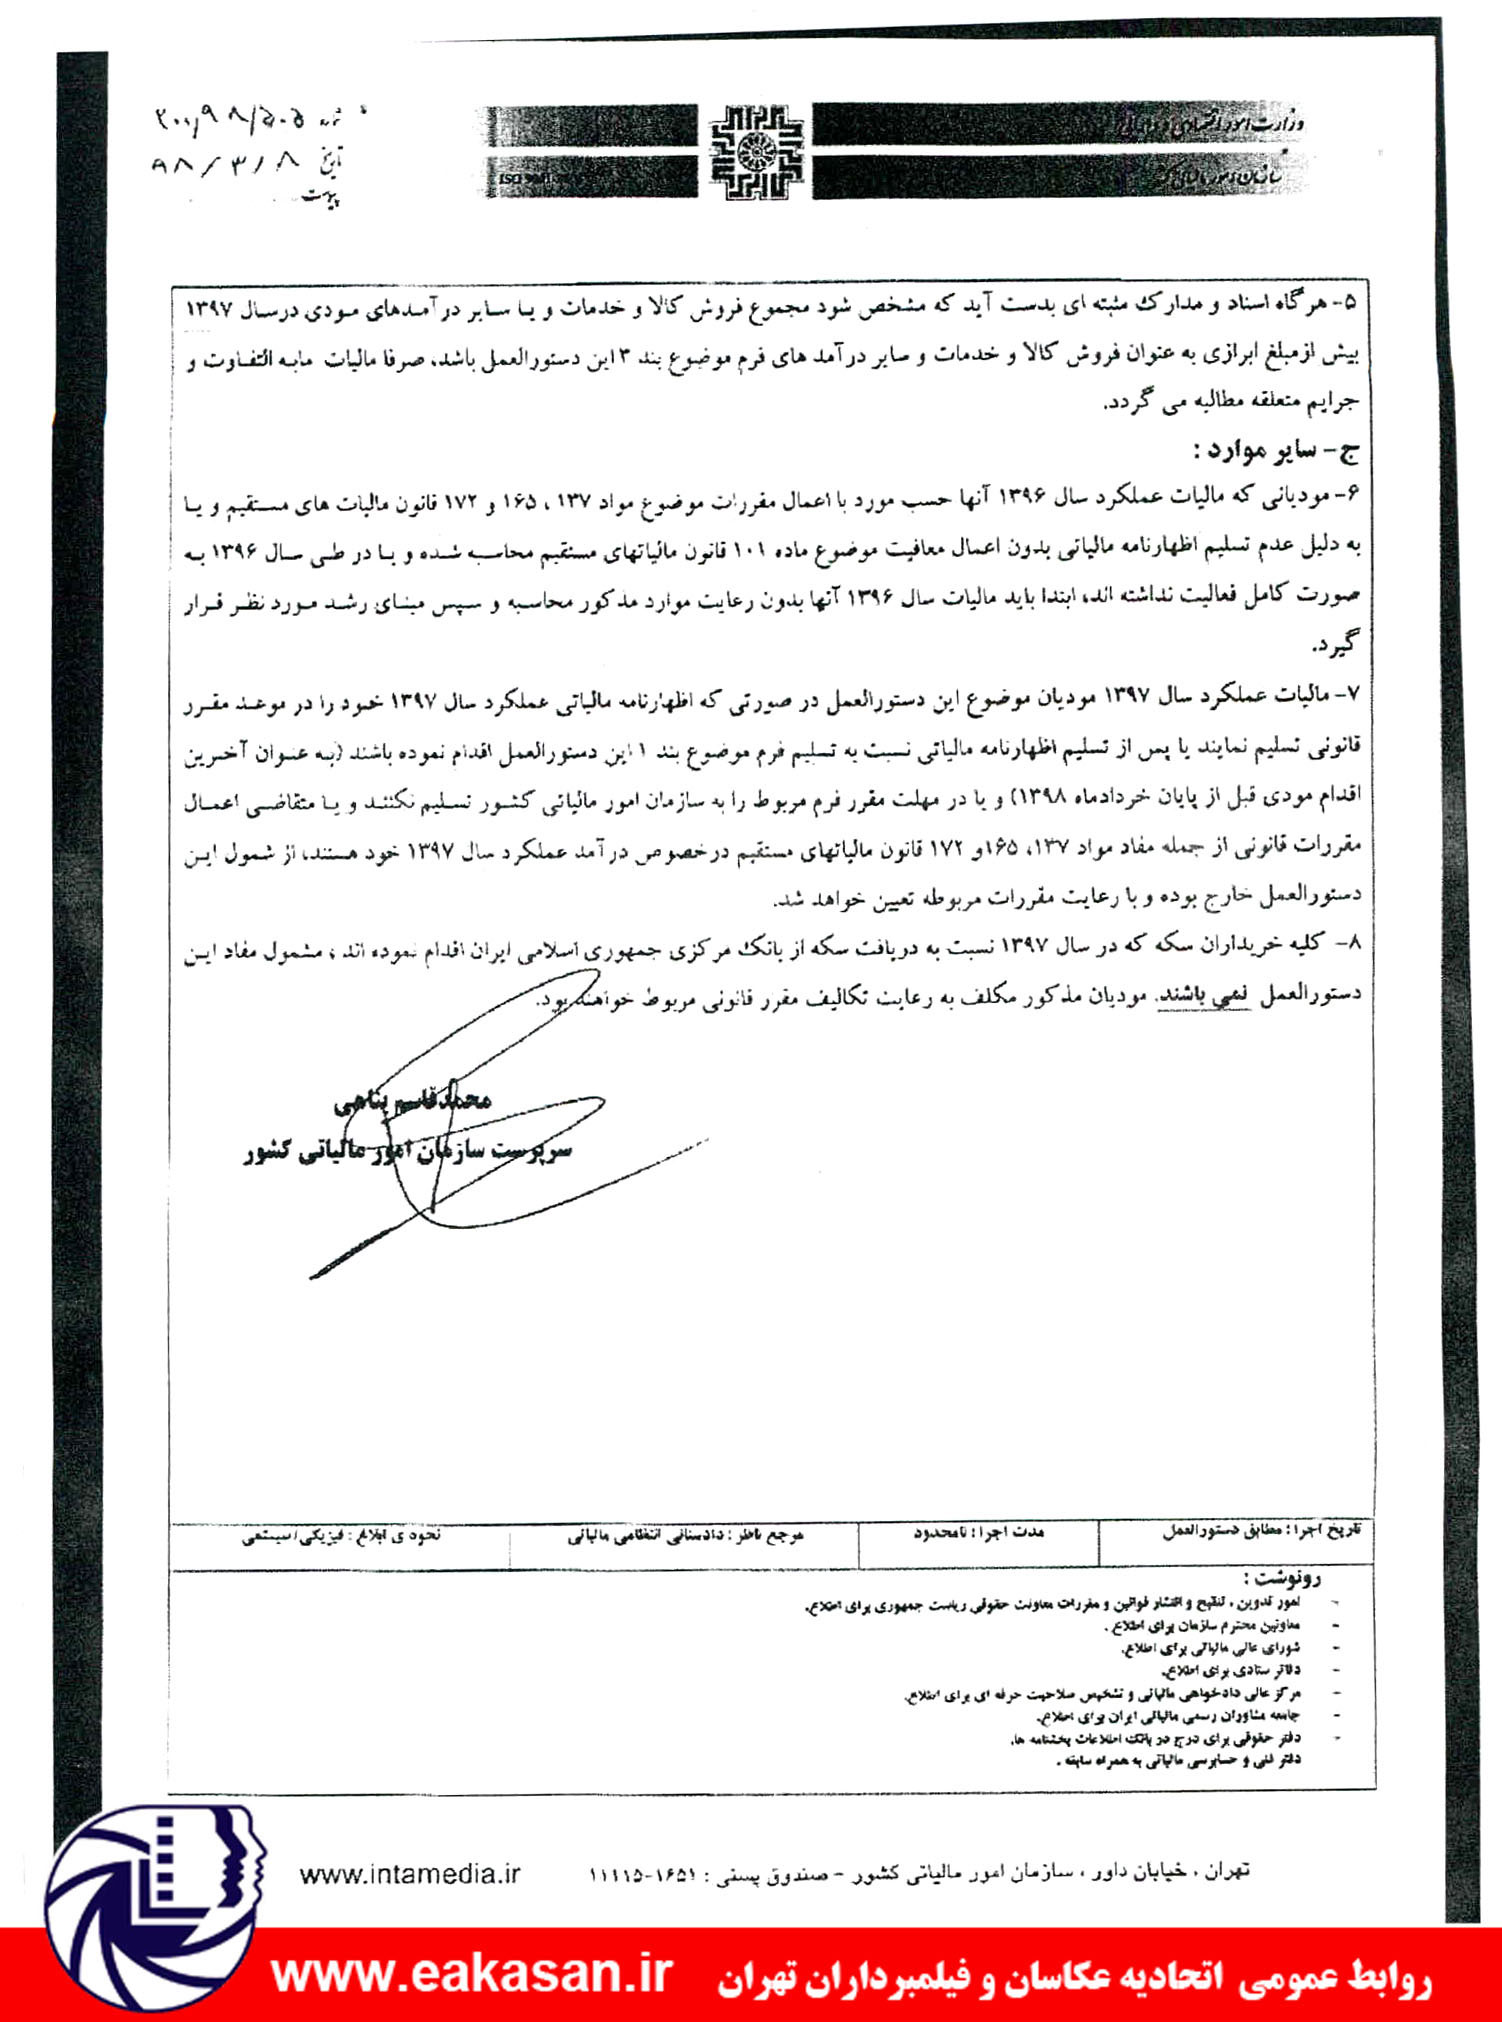 وزارت امور اقتصادی و دارایی
سازمان امور مالیاتی کشور
ISO 9001
شماره ۲۰۰/۹۸/۵۰۵
تاریخ ۹۸/۳/۸
پیوست
۵- هرگاه اسناد و مدارک مثبته ای بدست آید که مشخص شود مجموع فروش کالا و خدمات و یا سایر درآمدهای مودی درسال ۱۳۹۷
بیش ازمبلغ ابرازی به عنوان فروش کالا و خدمات و سایر درآمد های فرم موضوع بند ۳ این دستورالعمل باشد، صرفا مالیات مابه التفاوت و
جرایم متعلقه مطالبه می گردد.
ج- سایر موارد :
۶- مودیانی که مالیات عملکرد سال ۱۳۹۶ آنها حسب مورد با اعمال مقررات موضوع مواد ۱۳۷ ، ۱۶۵ و ۱۷۲ قانون مالیات های مستقیم و یا
به دلیل عدم تسلیم اظهارنامه مالیاتی بدون اعمال معافیت موضوع ماده ۱۰۱ قانون مالیاتهای مستقیم محاسبه شده و یا در طی سال ۱۳۹۶ به
صورت کامل فعالیت نداشته اند، ابتدا باید مالیات سال ۱۳۹۶ آنها بدون رعایت موارد مذکور محاسبه و سپس مبنای رشد مورد نظر قرار
گیرد.
۷- مالیات عملکرد سال ۱۳۹۷ مودیان موضوع این دستورالعمل در صورتی که اظهارنامه مالیاتی عملکرد سال ۱۳۹۷ خود را در موعد مقرر
قانونی تسلیم نمایند یا پس از تسلیم اظهارنامه مالیاتی نسبت به تسلیم فرم موضوع بند ۱ این دستورالعمل اقدام نموده باشند (به عنوان آخرین
اقدام مودی قبل از پایان خردادماه ۱۳۹۸) و یا در مهلت مقرر فرم مربوط را به سازمان امور مالیاتی کشور تسلیم نکنند و یا متقاضی اعمال
مقررات قانونی از جمله مفاد مواد ۱۳۷، ۱۶۵و ۱۷۲ قانون مالیاتهای مستقیم درخصوص درآمد عملکرد سال ۱۳۹۷ خود هستند، از شمول این
دستورالعمل خارج بوده و با رعایت مقررات مربوطه تعیین خواهد شد.
۸- کلیه خریداران سکه که در سال ۱۳۹۷ نسبت به دریافت سکه از بانک مرکزی جمهوری اسلامی ایران اقدام نموده اند ، مشمول مفاد این
دستورالعمل نمی باشند. مودیان مذکور مکلف به رعایت تکالیف مقرر قانونی مربوط خواهند بود.
محمدقاسم پناهی
سرپرست سازمان امور مالیاتی کشور
تاریخ اجرا : مطابق دستورالعمل
مدت اجرا : نامحدود
مرجع ناظر : دادستانی انتظامی مالیاتی
نحوه ی ابلاغ : فیزیکی/سیستمی
رونوشت :
- امور تدوین ، تنقیح و انتشار قوانین و مقررات معاونت حقوقی ریاست جمهوری برای اطلاع.
- معاونین محترم سازمان برای اطلاع .
- شورای عالی مالیاتی برای اطلاع.
- دفاتر ستادی برای اطلاع.
- مرکز عالی دادخواهی مالیاتی و تشخیص صلاحیت حرفه ای برای اطلاع.
- جامعه مشاوران رسمی مالیاتی ایران برای اطلاع.
- دفتر حقوقی برای درج در بانک اطلاعات بخشنامه ها.
دفتر فنی و حسابرسی مالیاتی به همراه سابقه .
تهران ، خیابان داور ، سازمان امور مالیاتی کشور - صندوق پستی : ۱۶۵۱-۱۱۱۱۵ www.intamedia.ir
روابط عمومی اتحادیه عکاسان و فیلمبرداران تهران www.eakasan.ir